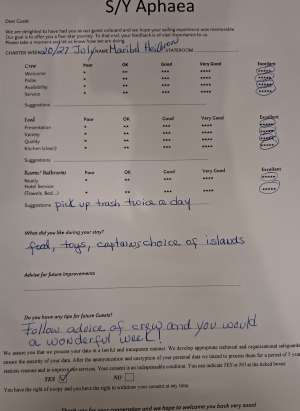 S/Y Aphaea
Dear Guest
We are delighted to have had you as our guest onboard and we hope your sailing experience was memorable.
Our goal is to offer you a five star journey. To that end, your feedback is of vital importance to us.
Please take a moment and let us know how we are doing.
CHARTER WEEK 20/27 July NAME Maribel STATEROOM
Crew Poor OK Good Very Good Excellent
Welcome * ** *** **** *****
Pride * ** *** **** *****
Availability * ** *** **** *****
Service * ** *** **** *****
Suggestions
Food Poor OK Good Very Good Excellent
Presentation * ** *** **** *****
Variety * ** *** **** *****
Quality * ** *** **** *****
Kitchen Island * ** *** **** *****
Suggestions
Rooms/ Bathrooms Poor OK Good Very Good Excellent
Ready * ** *** **** *****
Hotel Service
(Towels, Bed...) * ** *** **** *****
Suggestions pick up trash twice a day
What did you like during your stay?
food, toys, captains choice of islands
Advise for future improvements
Do you have any tips for future Guests?
Follow advice of crew and you would
a wonderful week!
We assure you that we process your data in a lawful and transparent manner. We develop appropriate technical and organisational
ensure the security of your data. After the anonymization and encryption of your personal data we intend to process them for a period of 2
reasons and to improve the services. Your consent is an indispensable condition. You can indicate YES or NO in the ticked boxes
YES NO
You have the right of access and you have the right to withdraw your consent at any time.
Thank you for your cooperation and we hope to welcome you back very soon!